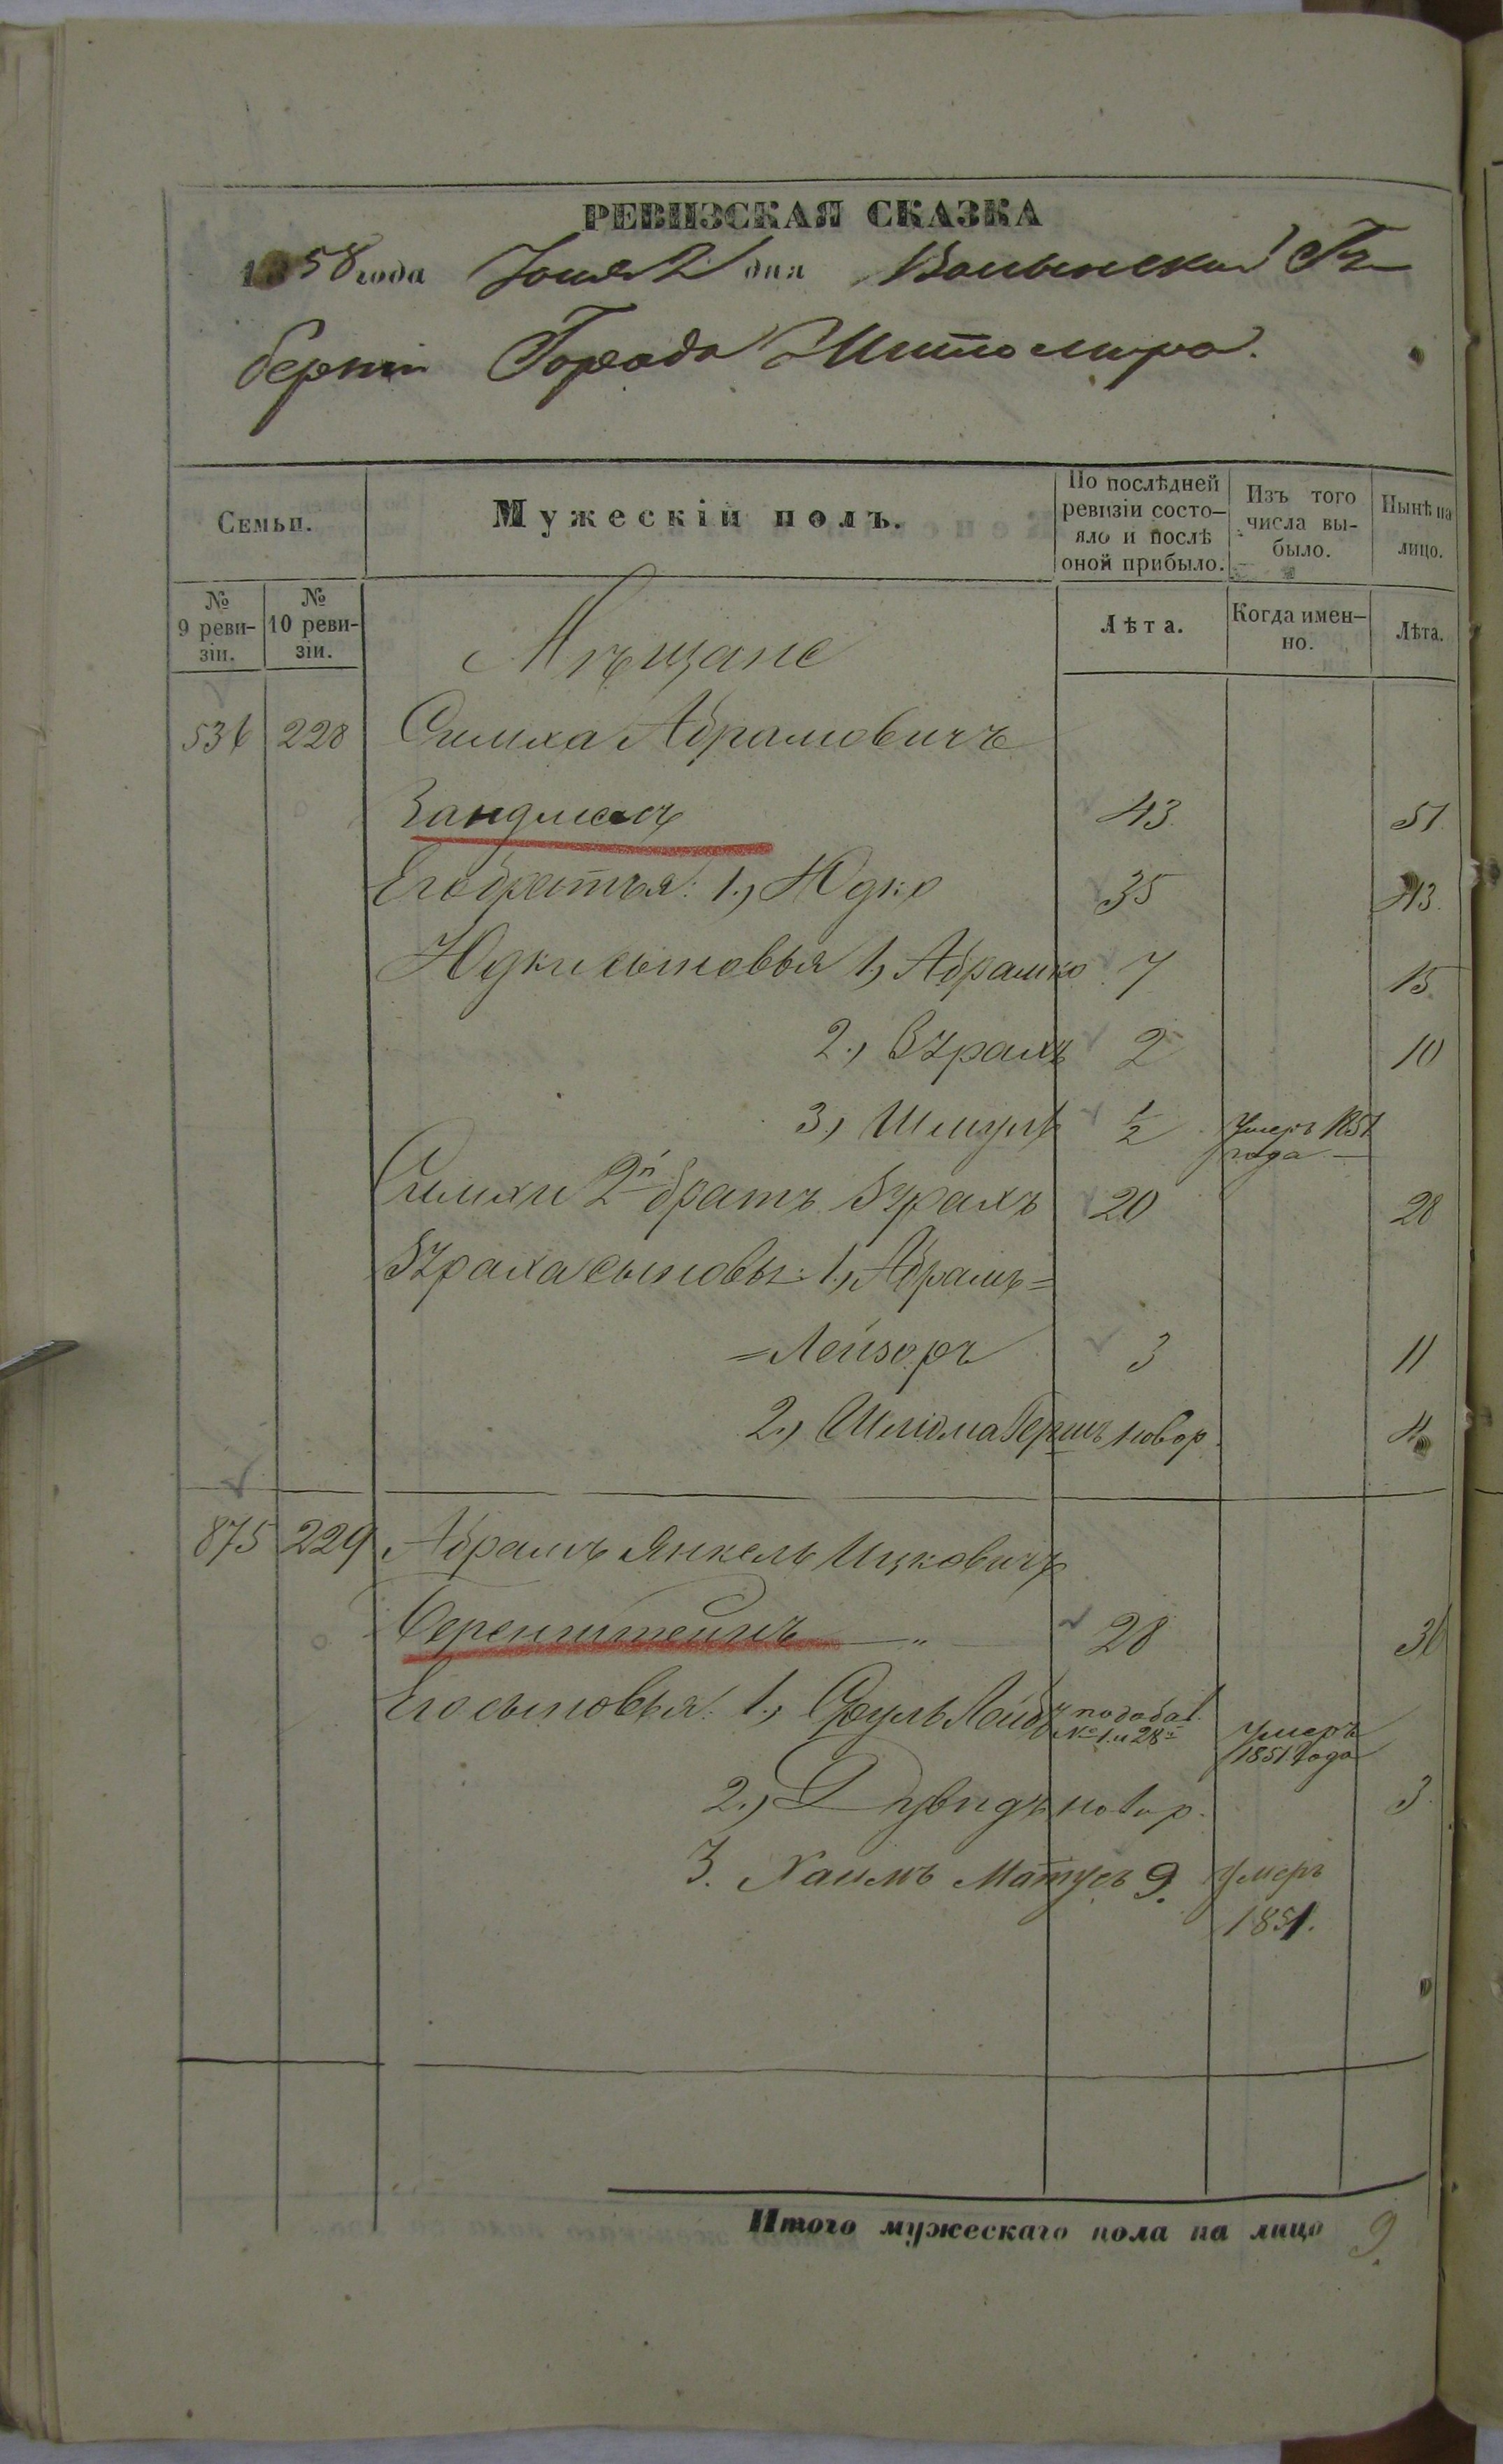 РЕВИЗСКАЯ СКАЗКА
1858 года Іюня 2 дня Волынской Гу-
берніи Города Житомира.
Семьи.
Мужескій полъ.
По послѣдней ревизіи состо-яло и послѣ оной прибыло.
Изъ того числа вы-было.
Нынѣ на лицо.
№ 9 реви-зіи.
№ 10 реви-зіи.
Лѣта.
Когда имен-но.
Лѣта.
Мѣщане
536 228 Симха Абрамовичъ
Зандманъ 43. 51.
Его братья: 1, Юдко 35 43.
Юдки сыновья 1, Абрашко 7 15
2., Сруль 2 10
3, Шмуль ½ Умеръ 1851 года
Симхи 2й братъ Зрахъ 20 28
Зраха сыновья: 1, Абрамъ=
=Лейзоръ 3 11
2, Шліома Гершъ новор. 4
875 229 Абрамъ Янкель Ицковичъ
Беренштейнъ 28 36
Его сыновья: 1, Сруль Лейбъ по добав. № 1. и 28й Умеръ 1851 года
2., Дувидъ новор. 3.
3. Хаимъ Матусъ 9. Умеръ
1851.
Итого мужескаго пола на лицо 9.